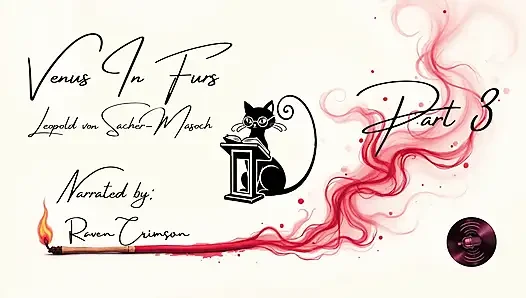 Venus In Furs
Leopold von Sacher-Masoch
Part 3
Narrated by:
Raven Crimson